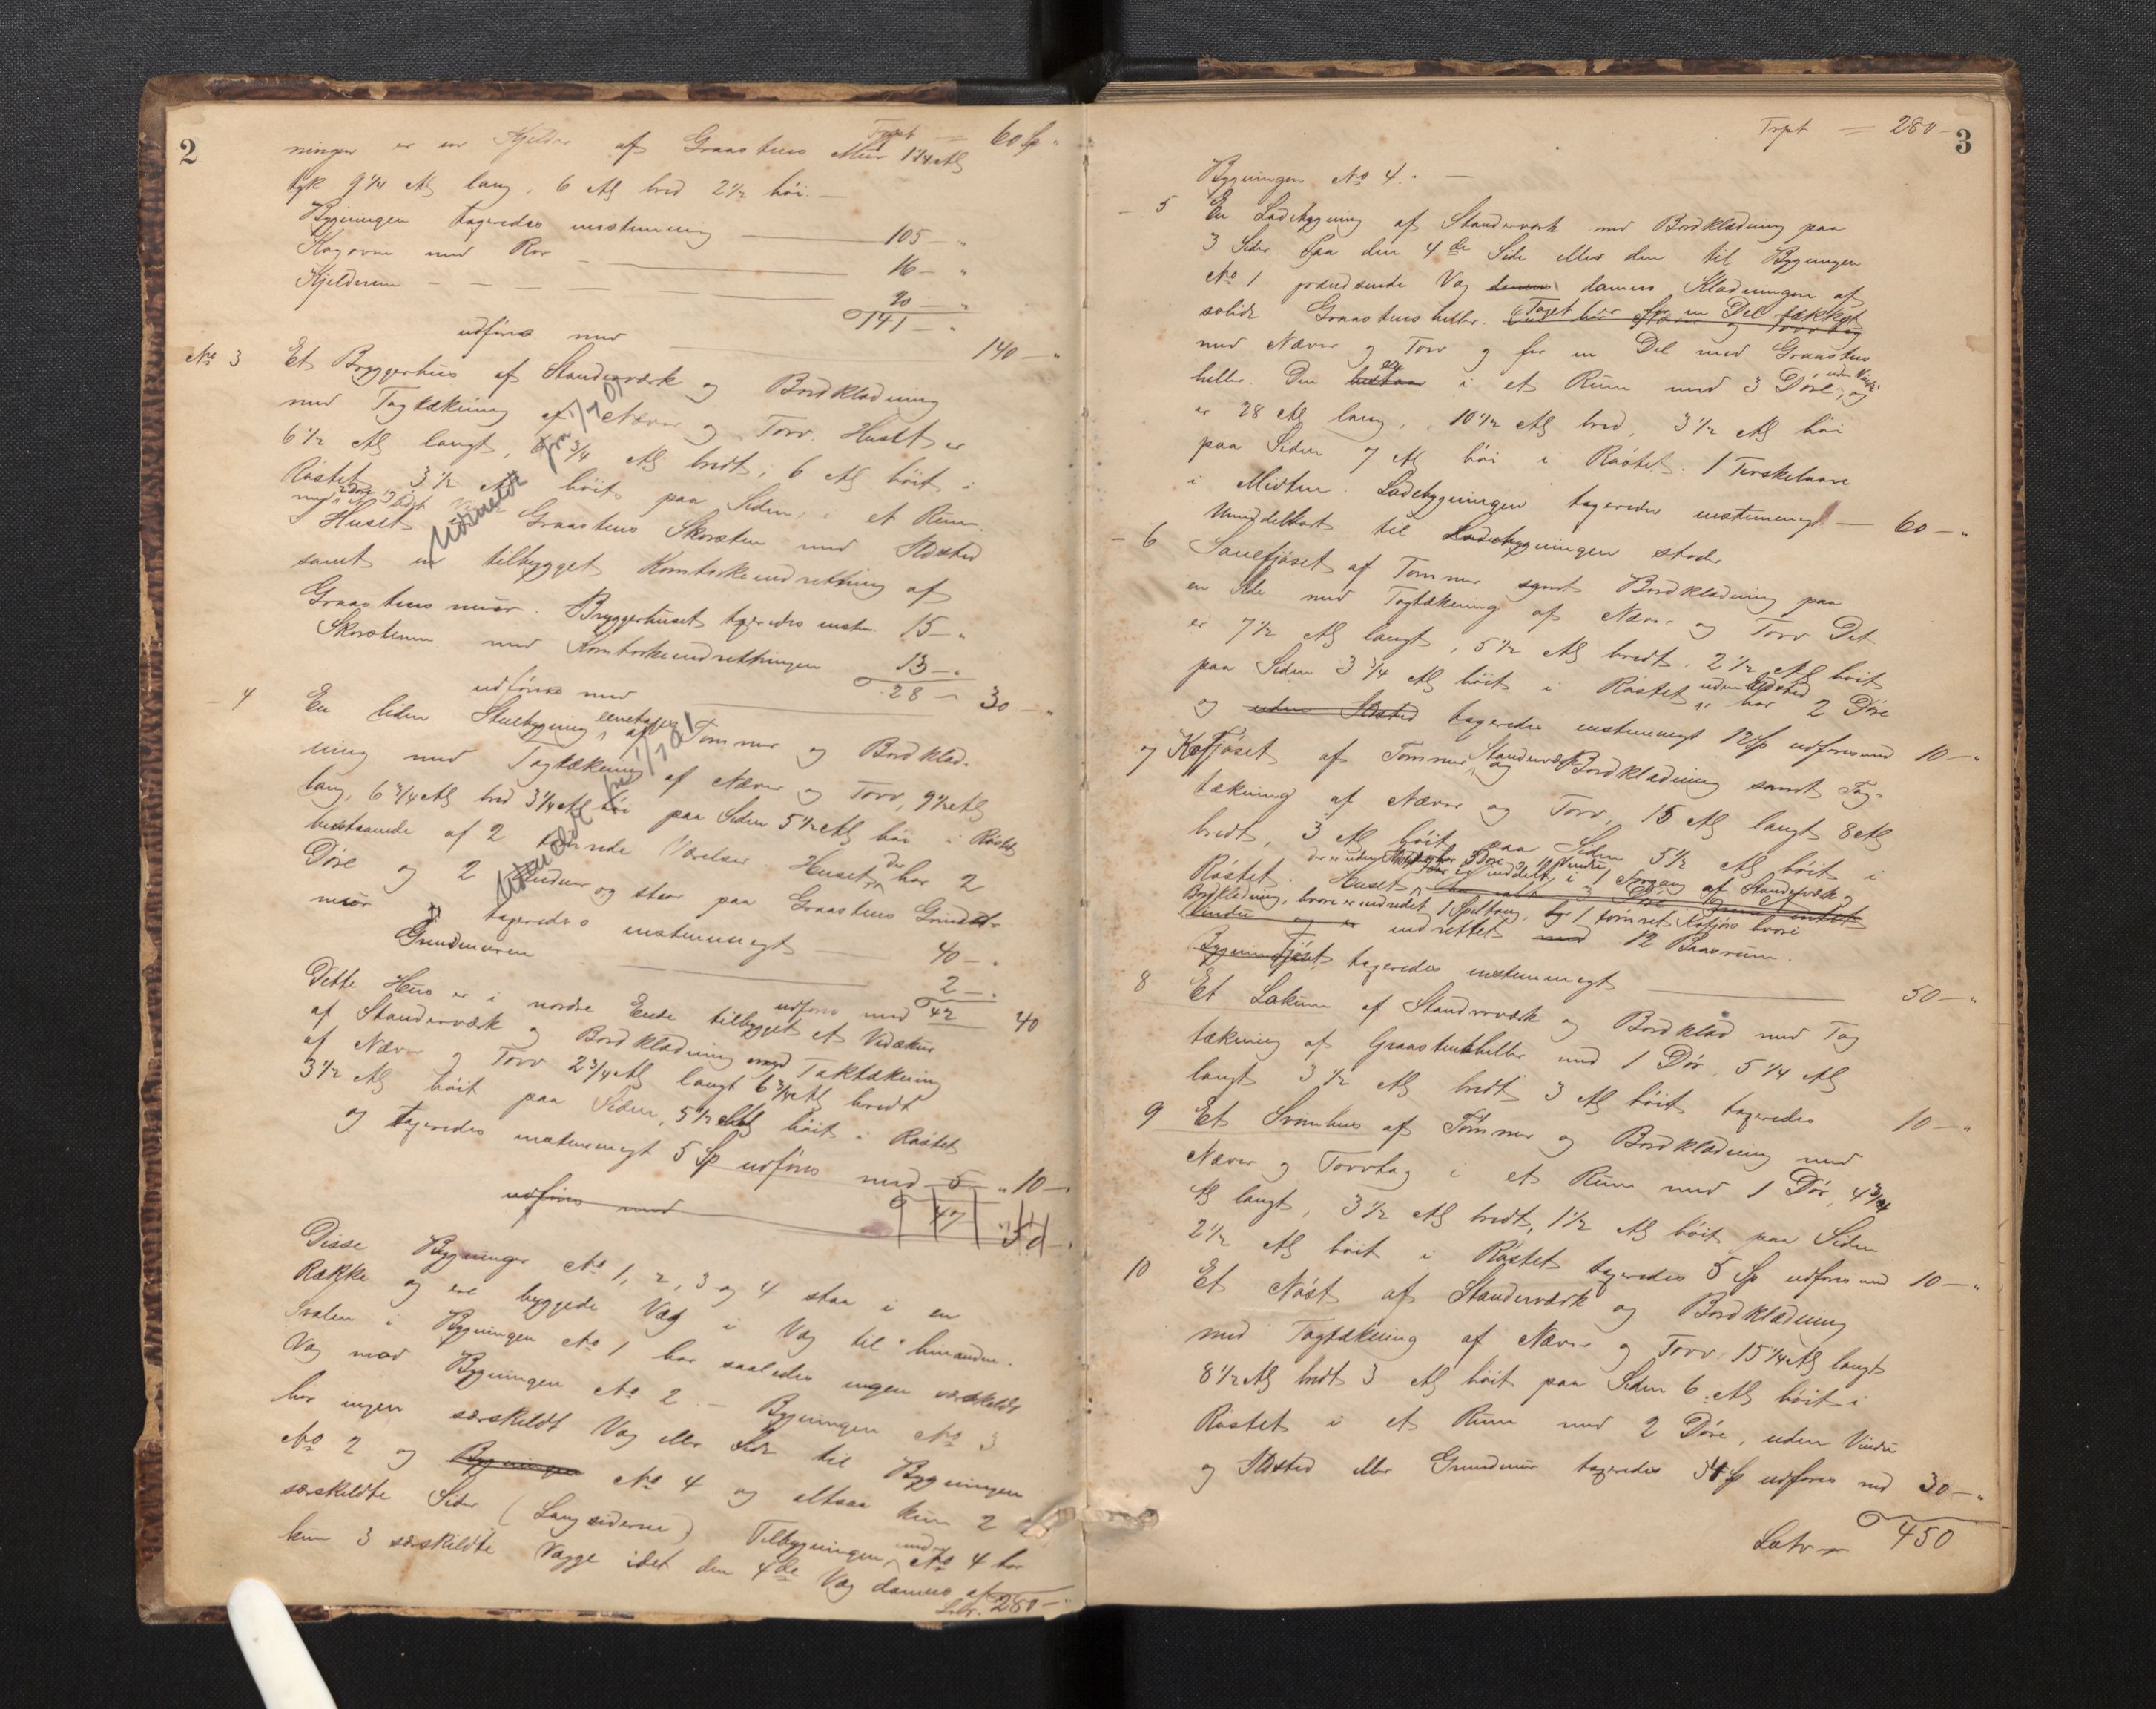 2
Trpt = 60 Sp "
ningen er en Kjelder af Graastens Muur 1 1/4 Al
tyk 9 1/4 Al lang, 6 Al bred 2 1/2 høi. —
Bygningen taxeredes enstemmig — 105 — "
Kogovn med Rør — 16 — "
Kjelderen — — — — 20 — "
141 — "
udføres med — 140 — "
No 3 Et Bryggerhus af Standerværk og Bordklædning
med Tagtækning af Næver og Torv. Huset er
6 1/2 Al langt, 6 3/4 Al bredt, 6 Al høit i
Røstet 3 1/2 Al høit paa Siden, i et Rum
med 2 Døre
Huset Graastens Skorsten med Ildsted
samt en tilbygget Korntørkeindretning af
Graastensmuur. Bryggerhuset taxeredes enstem. 15 — "
Skorstenen med Korntørkeindretningen 13 — "
28 —
udføres med — 30 — "
Udmeldt fra 1/7 01
- 4 En liden Stuebygning eenetages af Tømmer og Bordklæd-
ning med Tagtækning af Næver og Torv, 9 1/2 Al
lang, 6 3/4 Al bred 3 1/4 Al høi paa Siden 5 1/2 Al høi i Røstet
bestaaende af 2 Værelser. Huset der har 2
Døre og 2 Vinduer og staar paa Graastens Grund-
muur taxeredes enstemmigt — 40 — "
Grundmuren — 2 — "
udføres med 42 — 40
Udmeldt fra 1/7 01
Dette Hus er i nordre Ende tilbygget et Vedskur
af Standerværk og Bordklædning med Taktækning
af Næver og Torv 2 3/4 Al langt 6 3/4 Al bredt
3 1/2 Al høit paa Siden, 5 1/2 Al høit i Røstet
og taxeredes enstemmigt 5 Sp udføres med 5 " 10 — "
udføres med — 47 50 — "
Disse Bygninger No 1, 2, 3 og 4 staa i en
Række og ere byggede Væg i Væg til hinanden.
Svalen i Bygningen No 1 har saaledes ingen særskildt
Væg mod Bygningen No 2 — Bygningen No 3
har ingen særskildt Væg eller Side til Bygningen
No 2 og Bygningen No 4 og altsaa kun 2
særskildte Sider (Langsiderne) Tilbygningen under No 4 har
kun 3 særskildte Vægge idet den 4de Væg dannes af
Latr. 280 —
3
Trpt = 280 —
Bygningen No 4. —
- 5 En Ladebygning af Standerværk med Bordklædning paa
3 Sider. Paa den 4de Side eller den til Bygningen
No 1 vendende Væg dannes Klædningen af
solide Graastensheller. Taget er for en Del tækket
med Næver og Torv og for en Del med Graastens
heller. Den bestaar er i et Rum med 3 Døre, uden Vindu og
er 28 Al lang, 10 1/2 Al bred, 3 1/2 Al høi
paa Siden 7 Al høi i Røstet. 1 Terskelaave
i Midten. Ladebygningen taxeredes enstemmigt — 60 — "
Umiddelbart til Ladebygningen støder
- 6 Sauefjøset af Tømmer samt Bordklædning paa
en Side med Tagtækning af Næver og Torv Det
er 7 1/2 Al langt, 5 1/2 Al bredt, 2 1/2 Al høit
paa Siden 3 3/4 Al høit i Røstet uden Ildsted har 2 Døre
og uden Ildsted taxeredes enstemmigt 12 Sp udføres med 10 — "
og 7 Kofjøset af Tømmer Standerværk og Bordklædning samt Tag-
tækning af Næver og Torv, 15 Al langt 8 Al
bredt, 3 Al høit paa Siden 5 1/2 Al høit i
Røstet. Huset der er uden Ildsted har 3 Døre 1 Vindu er inddelt i 1 Forgang af Standerværk og
Bordklædning, hvori er indredet 1 Spiltaug, og 1 tømret Kofjøs hvori
Vindu og er indrettet med 12 Baasrum.
Bygningen Fjøset taxeredes enstemmigt — 50 — "
8 Et Løkum af Standerværk og Bordklæd med Tag
tækning af Graastenheller med 1 Dør, 5 1/4 Al
langt 3 1/2 Al bredt 3 Al høit taxeredes 10 — "
9 Et Svinehus af Tømmer og Bordklædning med
Næver og Torvtag i et Rum med 1 Dør, 4 3/4
Al langt, 3 1/2 Al bredt, 1 1/2 Al høit paa Siden
2 1/2 Al høit i Røstet taxeredes 5 Sp udføres med 10 — "
10 Et Nøst af Standerværk og Bordklædning
med Tagtækning af Næver og Torv 15 1/4 Al langt
8 1/2 Al bredt 3 Al høit paa Siden 6 Al høit i
Røstet i et Rum med 2 Døre, uden Vindu
og Ildsted eller Grundmur taxeredes 34 Sp udføres med 30 — "
Latr — 450